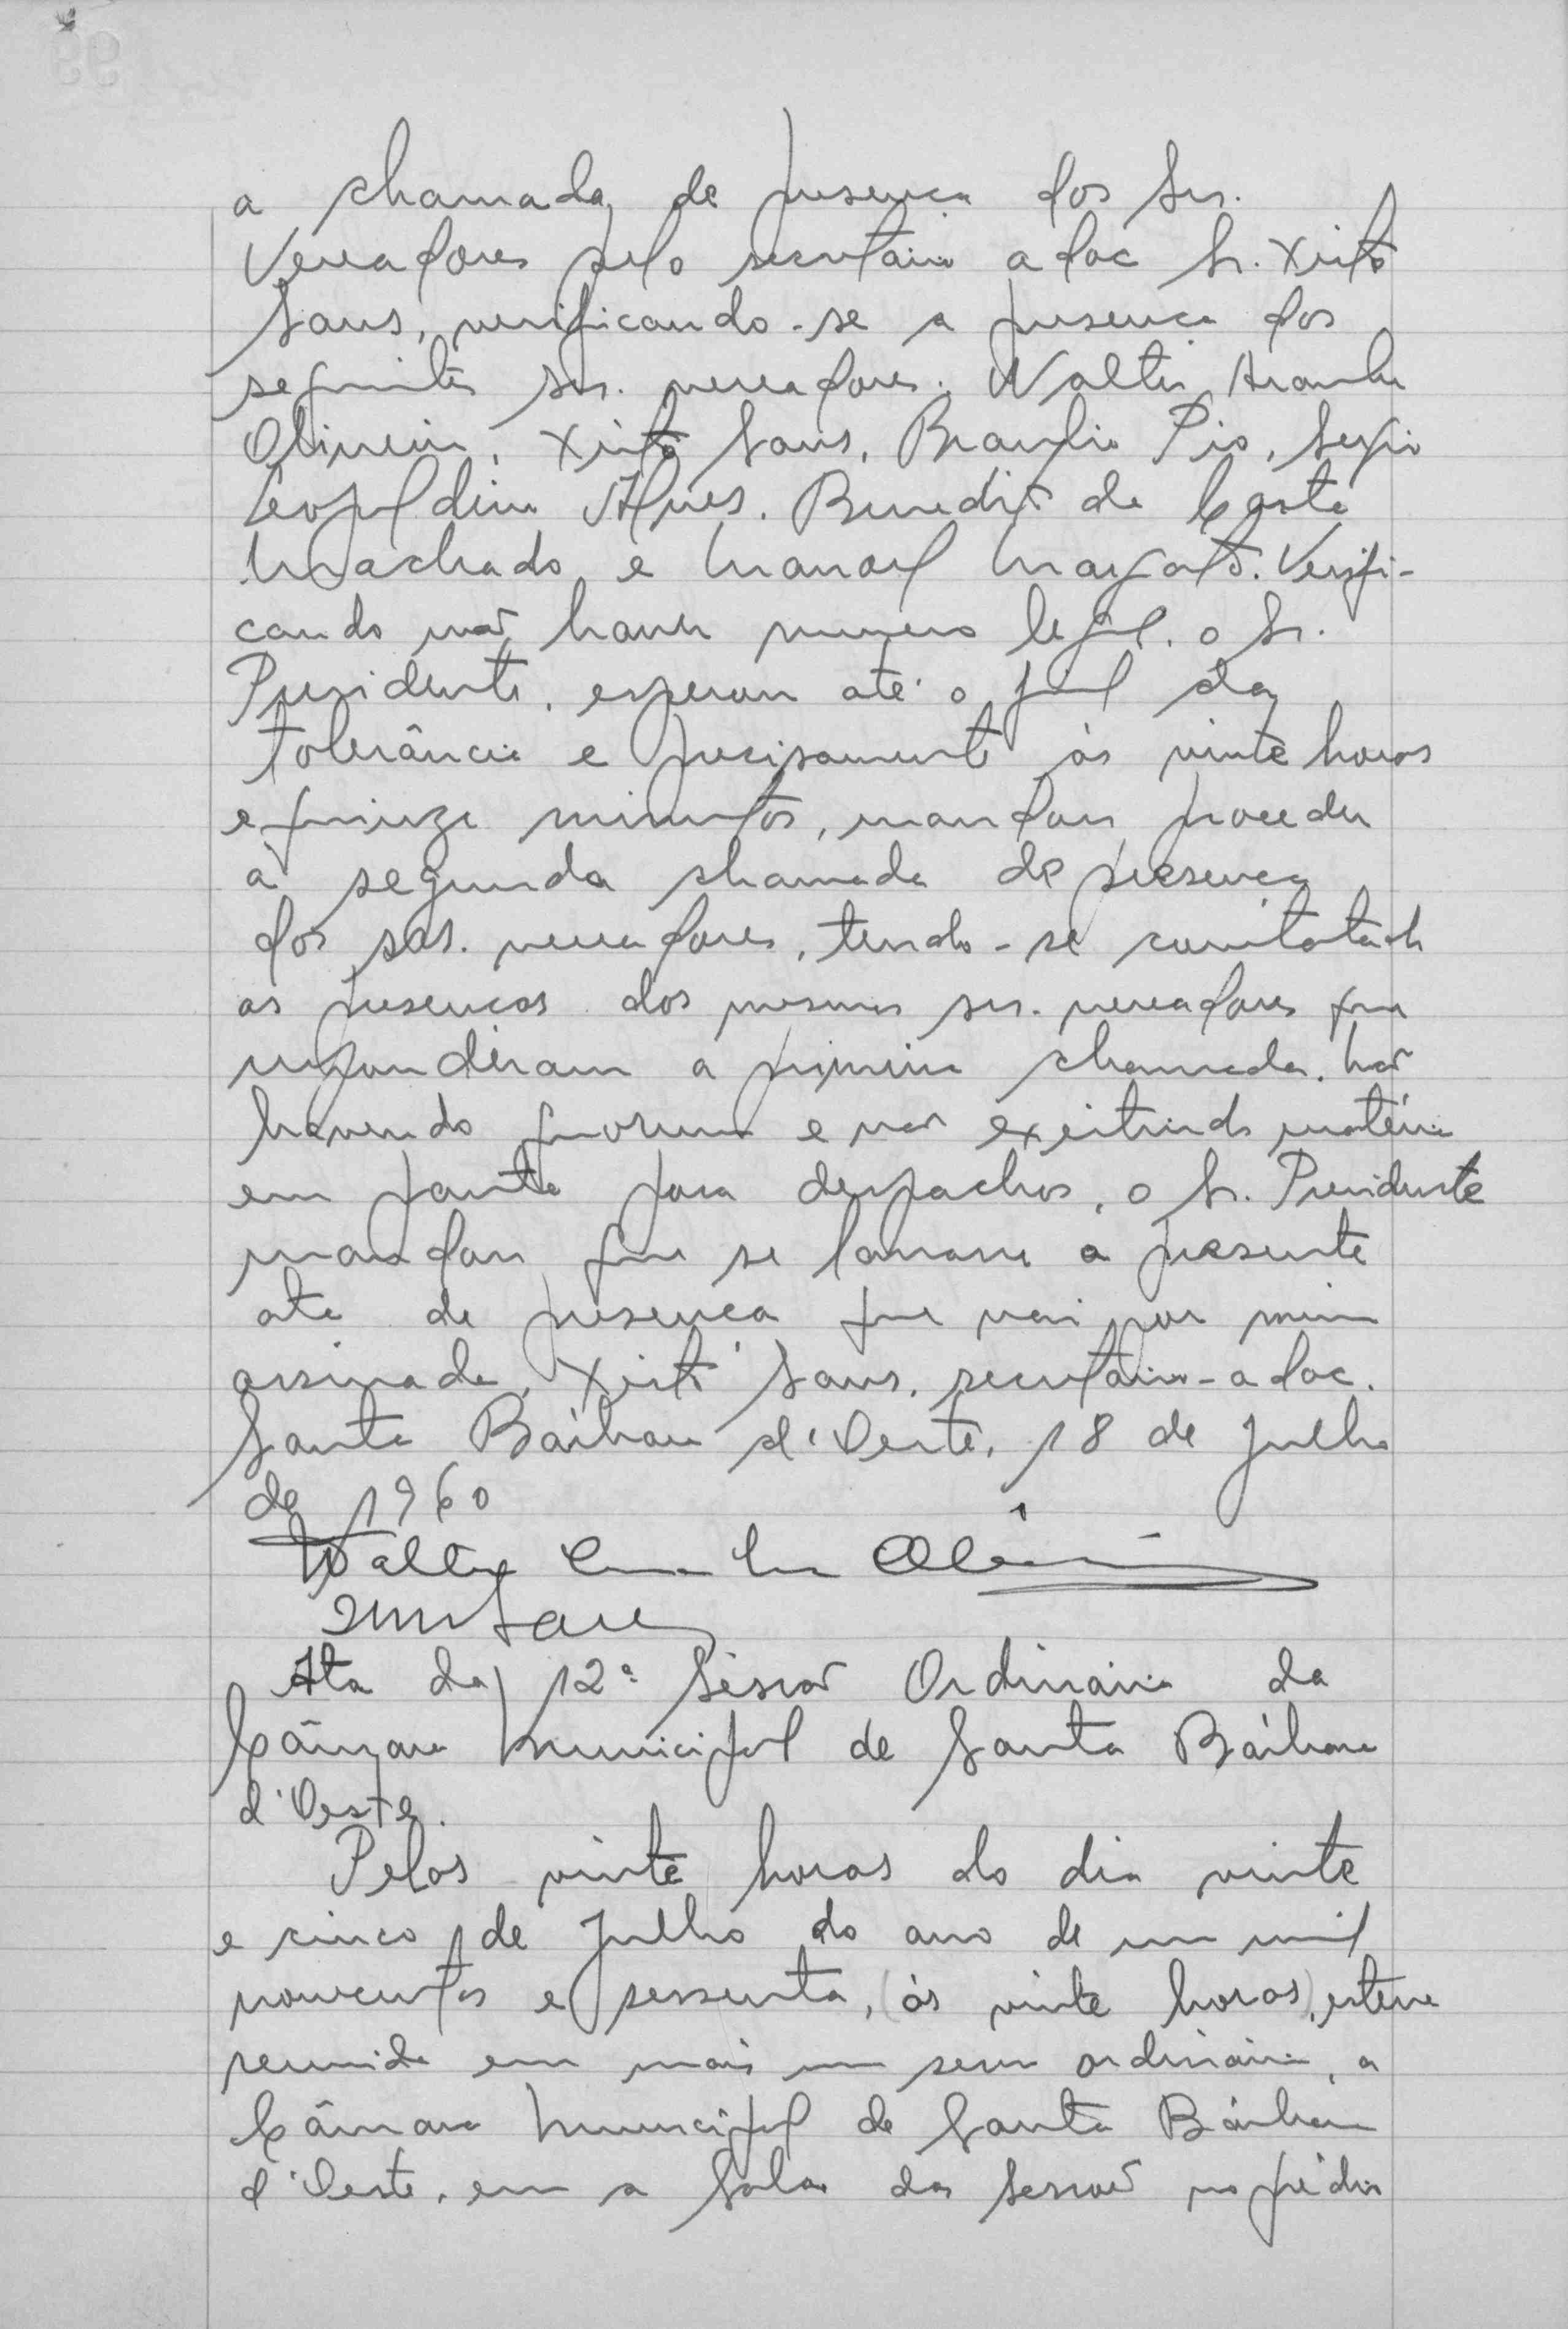 a chamada de presença dos Srs.
Vereadores pelo secretário adoc Sr. Xisto
Sans, verificando-se a presença dos
seguintes srs. vereadores: Walter Aranha
Oliveira, Xisto Sans, Braulio Pio, Sergio
Leopoldino Alves, Benedito da Costa
Machado e Manoel Margato. Verifi-
cando não haver numero legal, o Sr.
Presidente, esperou até o final da
tolerância e precisamente às vinte horas
e quinze minutos, mandou proceder
a segunda chamada de presença
dos srs. vereadores, tendo-se constatado
as presenças dos mesmos srs. vereadores que
responderam a primeira chamada. Não
havendo quorum e não existindo matéria
em pauta para despachos, o Sr. Presidente
mandou que se lavrasse a presente
ata de presença que vai por mim
assinada, Xisto Sans, secretário-adoc.
Santa Bárbara d'Oeste, 18 de Julho
de 1960
Walter Aranha Oliveira
Ata da 12ª Sessão Ordinária da
Câmara Municipal de Santa Bárbara
d'Oeste.
Pelas vinte horas do dia vinte
e cinco de Julho do ano de um mil
novecentos e sessenta, (às vinte horas), esteve
reunida em mais um sessão ordinária, a
Câmara Municipal de Santa Bárbara
d'Oeste, em a Sala das Sessões no prédio